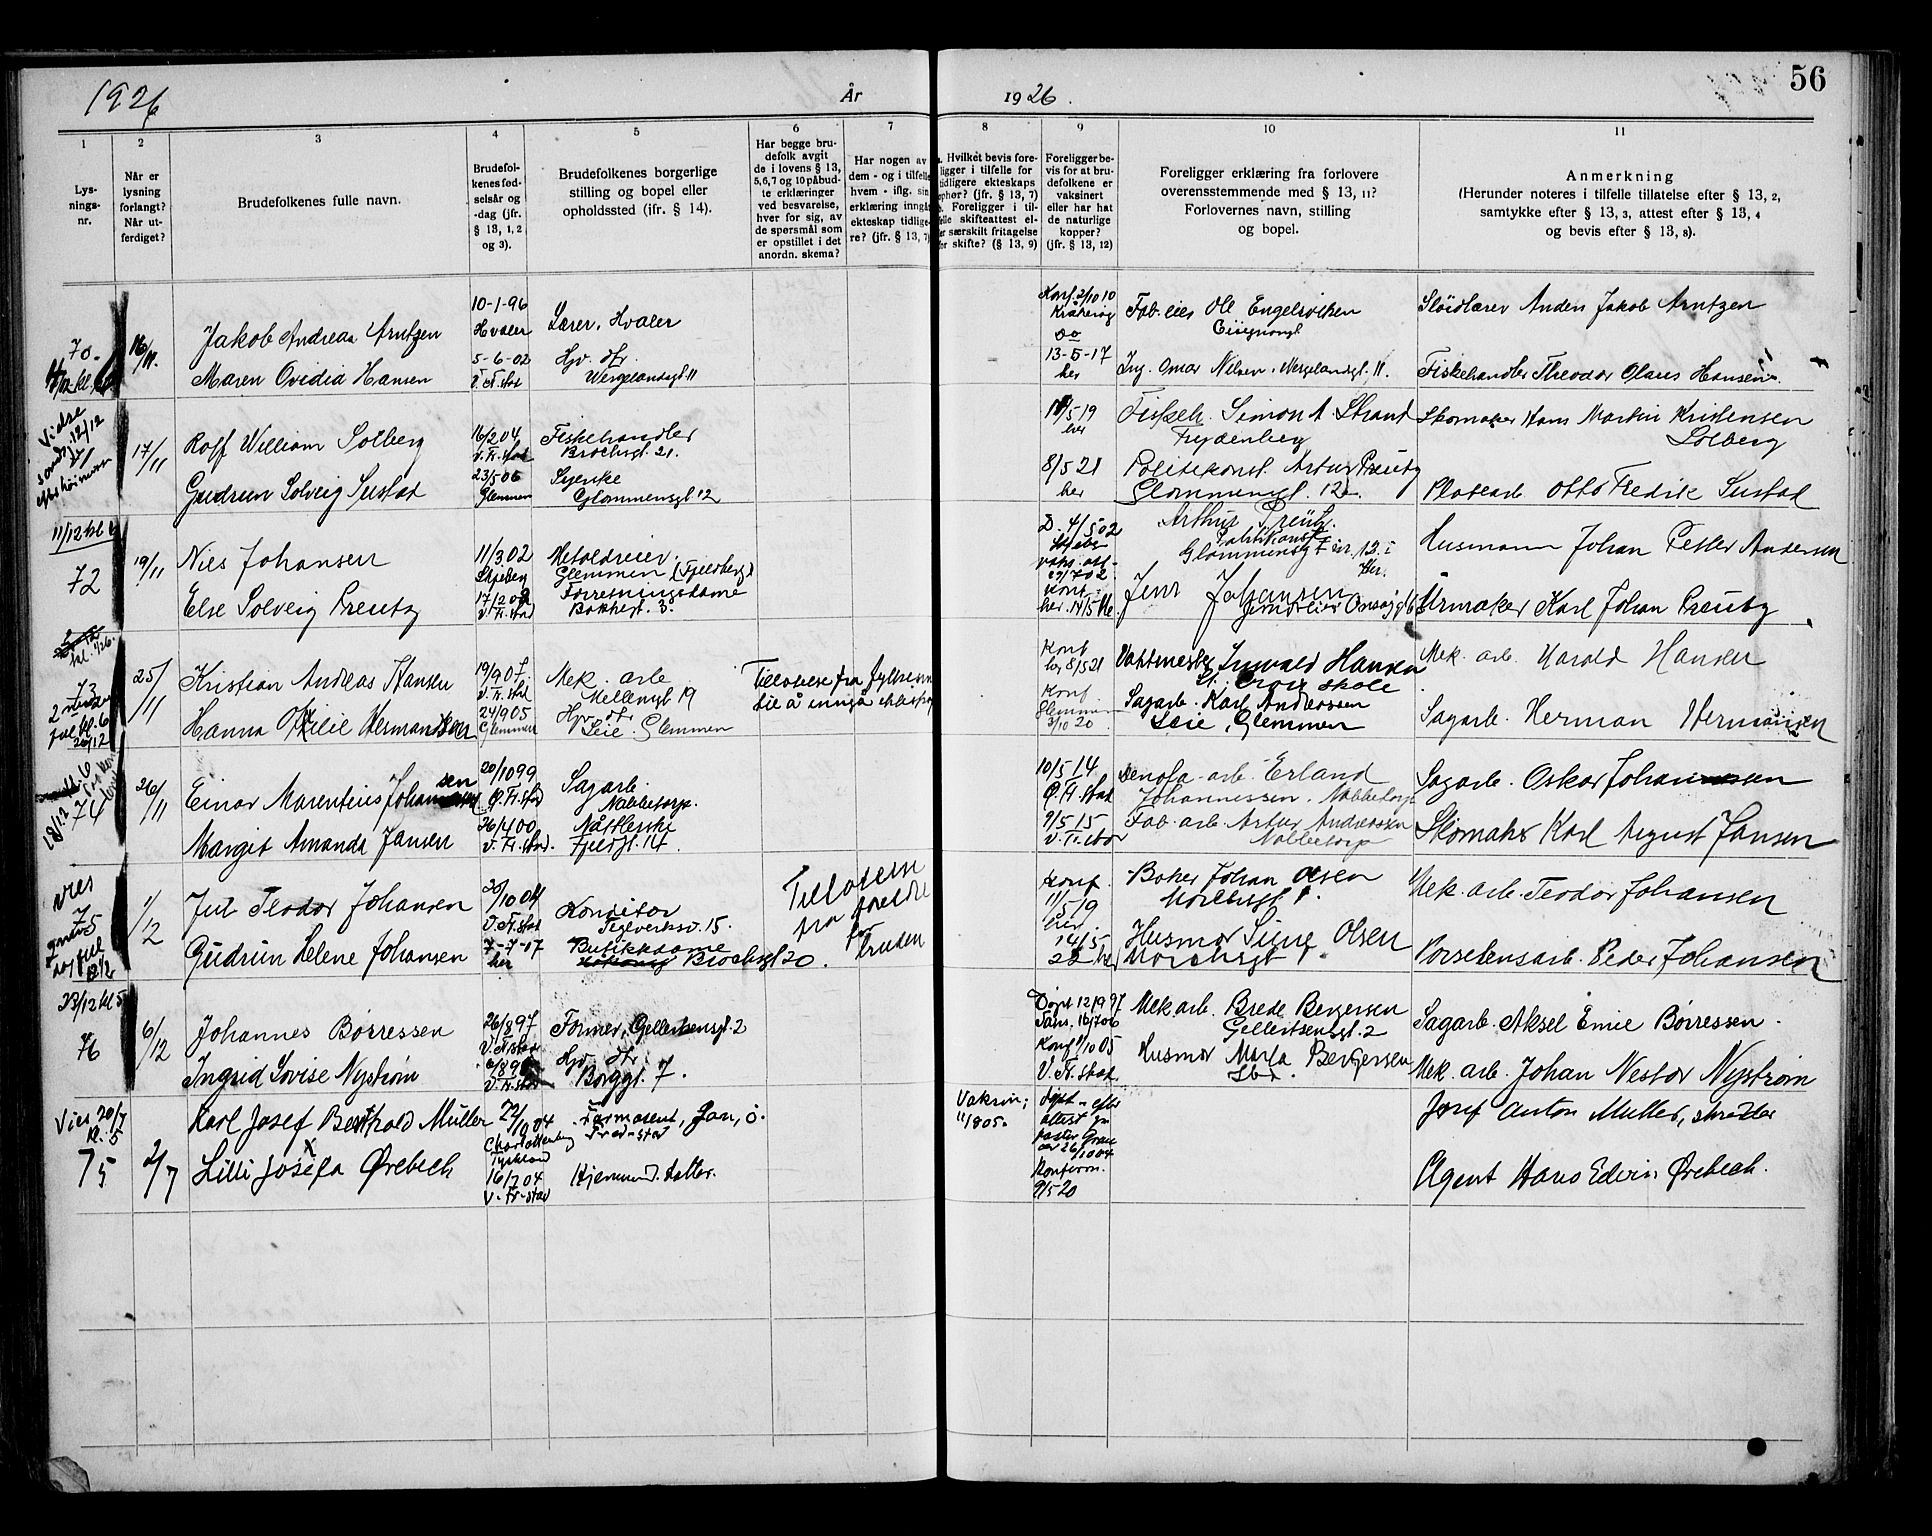 1926
År
1926.
56
1
2
3
4
5
6
7
8
9
10
11
Lys-
nings-
nr.
Når er
lysning
forlangt?
Når ut-
ferdiget?
Brudefolkenes fulle navn.
Brudefol-
kenes fød-
selsår og
-dag (jfr.
§ 13, 1, 2
og 3).
Brudefolkenes borgerlige
stilling og bopel eller
opholdssted (ifr. § 14).
Har begge bru-
defolk avgit
de i lovens § 13,
5,6,7 og 10 påbud-
te erklæringer
ved besvarelse,
hver for sig, av
de spørsmål som
er opstillet i det
anordn. skema?
Har nogen av
dem - og i tilfelle
hvem - iflg. sin
erklæring inngåt
ekteskap tidlige-
re? (jfr. § 13, 7)
a. Hvilket bevis fore-
ligger i tilfelle for
tidligere ekteskaps
ophør? (jfr. § 13, 7)
b. Foreligger i til-
felle skifteattest el-
ler særskilt fritagelse
for skifte? (§ 13, 9)
Foreligger be-
vis for at bru-
defolkene er
vaksinert
eller har hat
de naturlige
kopper?
(jfr. § 13, 12)
Foreligger erklæring fra forlovere
overensstemmende med § 13, 11?
Forlovernes navn, stilling
og bopel.
Anmerkning
(Herunder noteres i tilfelle tillatelse efter § 13, 2,
samtykke efter § 13, 3, attest efter § 13, 4
og bevis efter § 13, 8).
70.
16/11.
Jakob Andreas Arntzen
10-1-96
Hvaler
Lærer, Hvaler
Konf. 2/10 10
Fab. eier Ole Engelsviken
Sløidlærer Anders Jakob Arntzen
Maren Ovedia Hansen
5-6-02
V. Fr.stad
Hjv. dtr.
Wergelandsgt. 11
13-5-17
her
Ing. Omar Nilsen, Wergelandsgt. 11.
Fiskehandler Theodor Olaus Hansen
Vielse
sønd. 12/12
17/11
Rolf William Solberg
16/2 04
V. Fr.stad
Fiskehandler
Brochsgt. 21.
5 19
her
Fiskeh. Simon A Strand
Frydenberg
Skomaker Hans Martin Kristensen
Solberg
Gudrun Solveig Sustad
23/5 06
Glemmen
Syerske
Glommensgt. 12
8/5 21
her
Politikonst. Artur Preutz
Glommensgt. 12.
Platearb. Otto Fredik Sustad
11/12 kl 6
72
19/11
Nils Johansen
11/3 02
Skjeberg
Glemmen (Fjeldberg)
D. 4/5 02
Arthur Preutz.
Politikonst.
Husmann Johan Petter Andersen
Else Solveig Preutz
V. Fr.stad
Forretningsdame
Bakkegt. 3.
Jens Johansen
Urmaker Karl Johan Preutz
73
25/11
Kristian Andreas Hansen
19/9 07.
V. Fr.stad
Mek. arb.
Mellemgt. 19
Tillatelse fra fylkesm.
til å inngå ekteskap
Konf.
her 8/5 21
Vaktmester Hansen
St. Croix skole
Mek. arb. Harold Hansen
2 juledag
kl. 6
Hanna Otilie Hermansen
24/9 05
Glemmen
Hjv. dtr.
Leie. Glemmen
Konf
Glemmen
3/10 20
Sagarb. Karl Andressen
Leie, Glemmen
Sagarb. Herman Hermansen
18/12
74
26/11
Einar Marentius Johansen
20/10 99
Ø. Fr.stad
Sagarb.
Nabbetorp.
10/5 14
Ø. Fr.stad
Erland
Johannessen. Nabbetorp
Sagarb. Oskar Johannessen
Margit Amanda Jansen
26/4 00
V. Fr.stad.
Nåtlerske
Fjeldgt. 14.
9/5 15
V. Fr.stad
Fab. arb. Artur Andressen
Nabbetorp
Skomaker Karl August Jansen
75
1/12
Jul Teodor Johansen
20/10 04
V. Fr.stad
Konditor
Teglverksv. 15.
Tillatelse
fra foreldre
for
bruden
Konf.
11/5 19
her
Baker Johan Olsen
Mek. arb. Teodor Johansen
Gudrun Helene Johansen
7-7-07
her
Butikkdame
Brochsgt 20.
14/5
22 her
Husmor Signe Olsen
Porselensarb. Peder Johansen
23/12 kl 5
76
6/12
Johannes Børressen
26/8 97
V. Fr.stad
Former, Gellertsensgt. 2
Døpt 12/9 97
Konf 1/10 05
Mek arb. Brede Bergersen
Gellertsensgt. 2
Sagarb. Aksel Emil Børressen.
Ingrid Lovise Nystrøm
V. Fr.stad
Hjv. dtr.
Borggt. 7.
V. Fr.stad
Husmor Marta Bergersen
Mek. arb. Johan Nestor Nystrøm
Vies 20/7
kl. 5
75
2/7
Karl Josef Berthold Müller
22/9 04
Charlottenburg
Tyskland
Farmasøit,
Fred-stad
Vaksin;
11/8 05.
attest fra
pastor
Josef Anton Muller, skredder
Lilli Josefa Ørebech
16/7 04
V. Fr-stad
Hjemmev. datter.
Konfirm.
9/5 20
Agent Hans Edvin Ørebech.